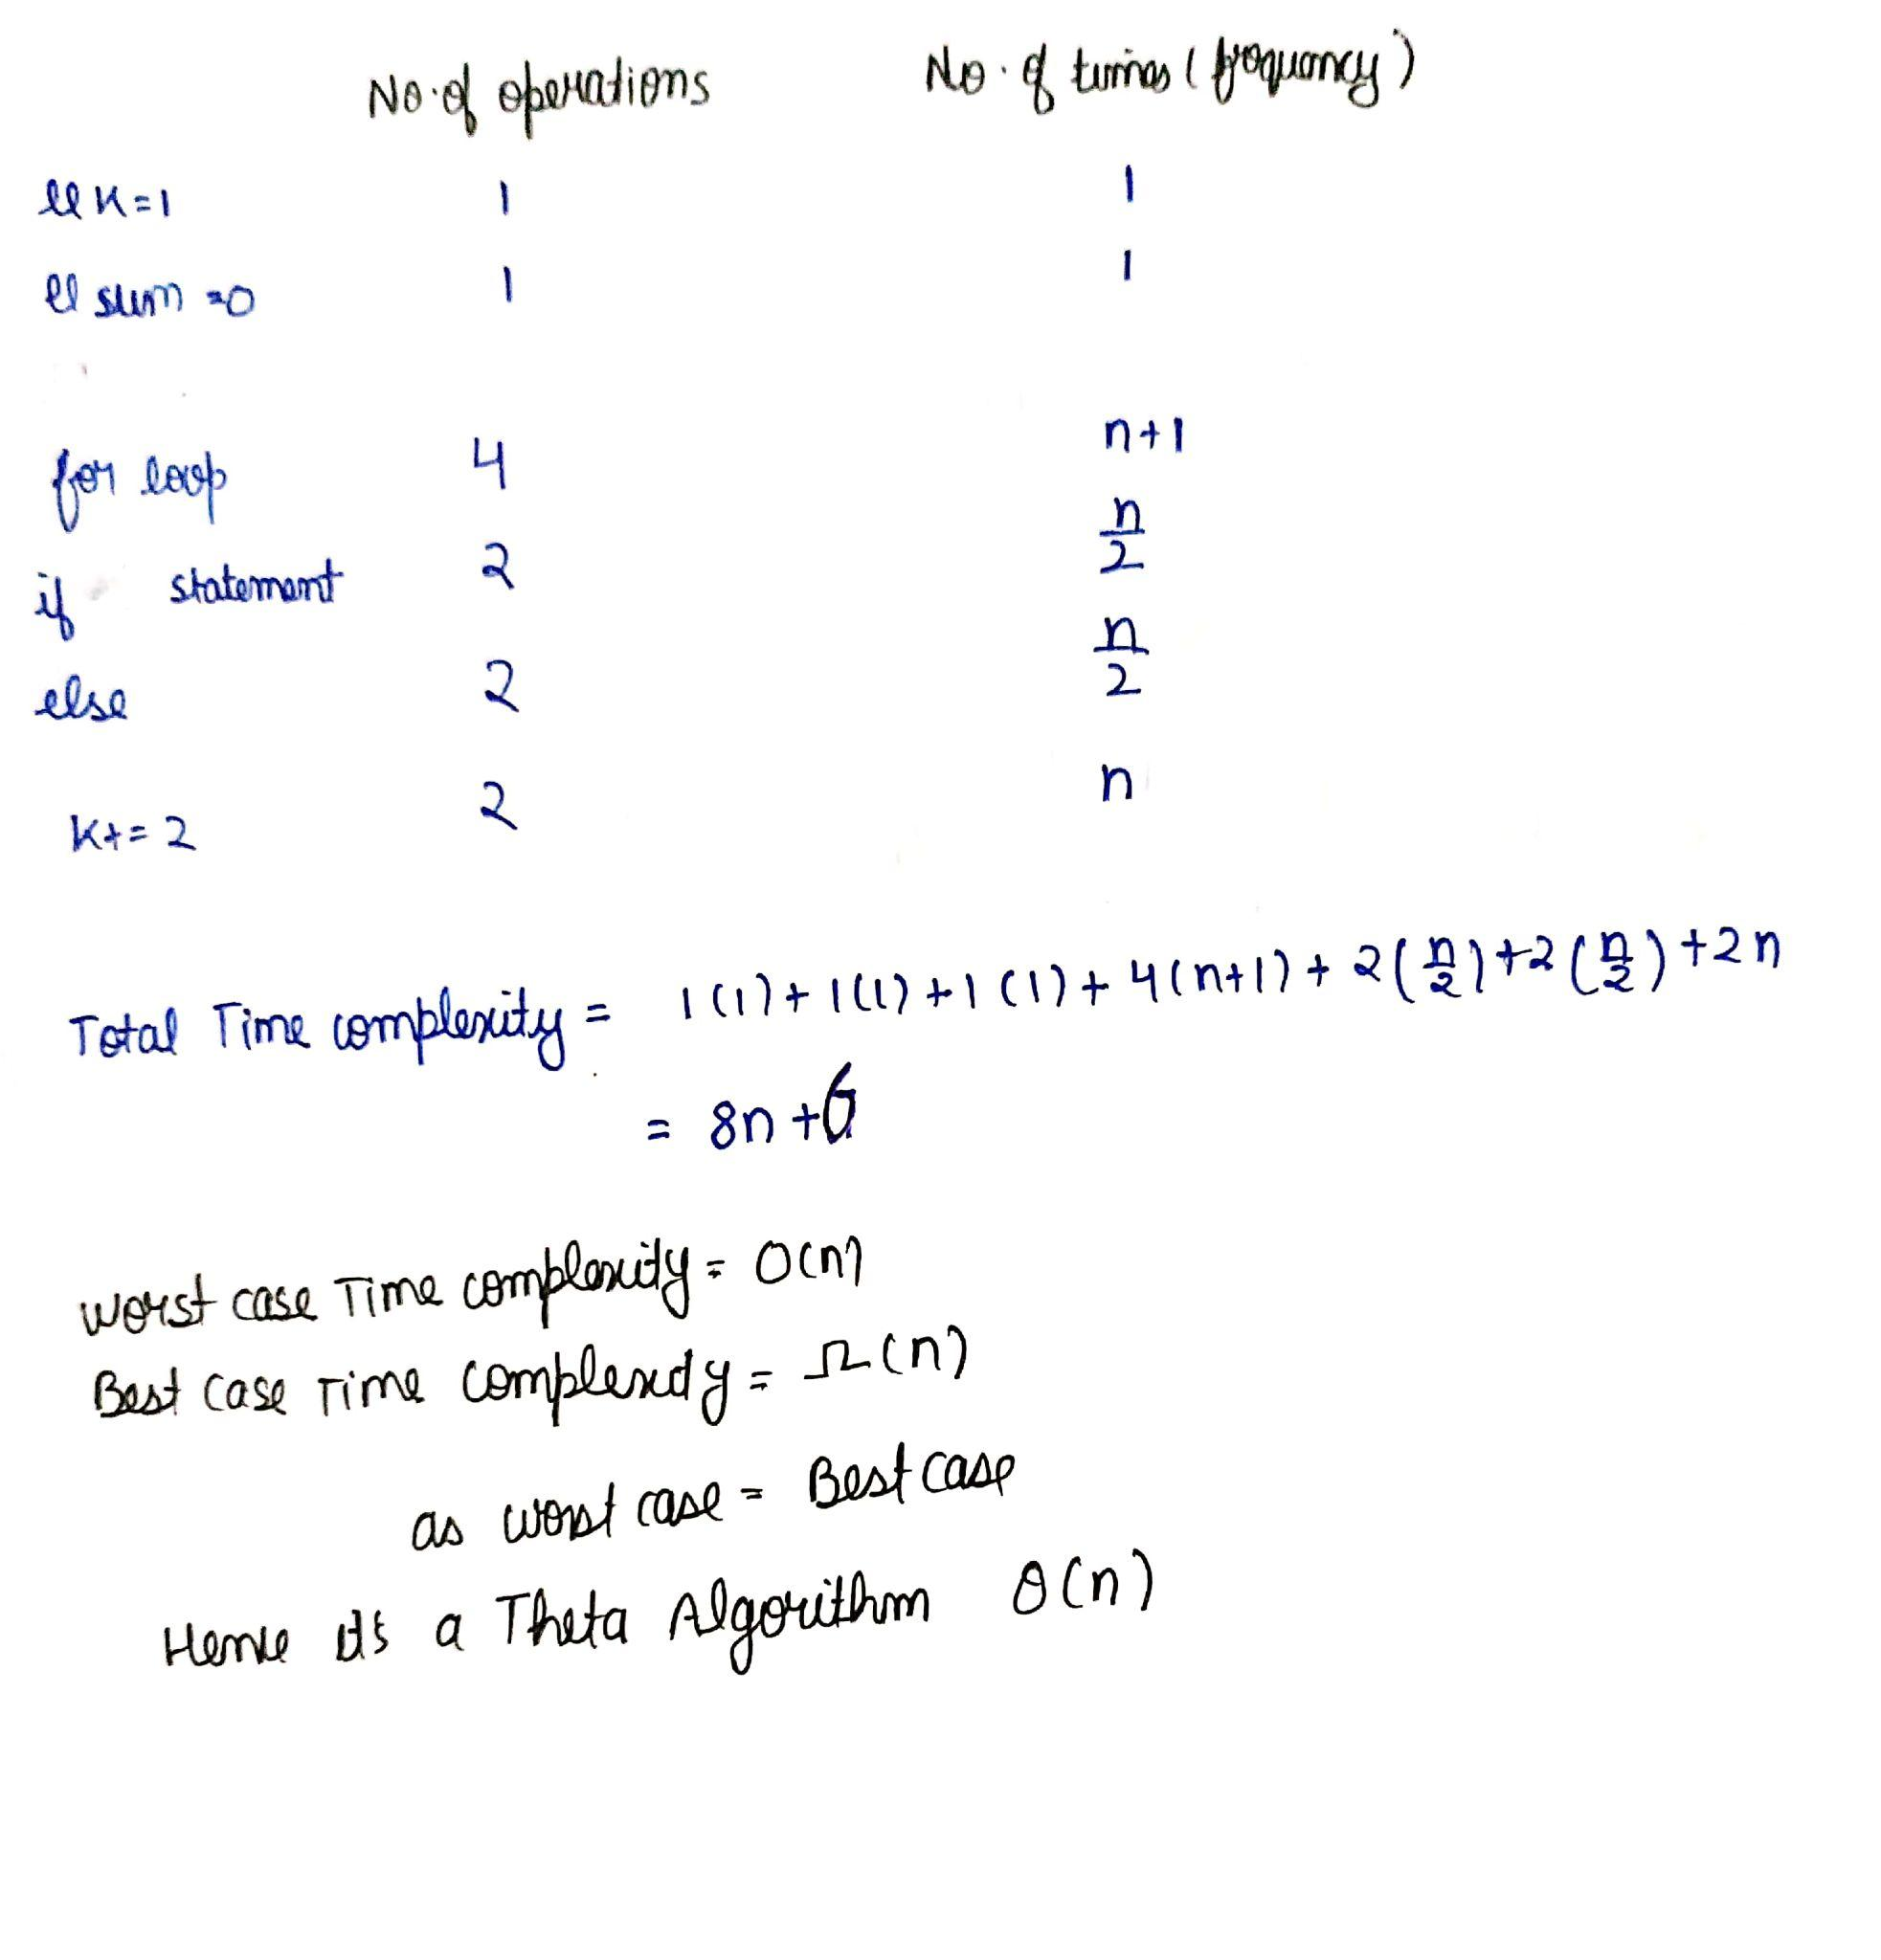 No. of operations No. of times (frequency)
ll k=1 1 1
ll sum =0 1 1
for loop 4 n+1
if statement 2 n/2
else 2 n/2
k+= 2 2 n
Total Time complexity = 1(1)+1(1)+1(1)+4(n+1)+2(n/2)+2(n/2)+2n
= 8n+6
Worst case Time complexity = O(n)
Best case Time complexity = Ω(n)
as worst case = Best case
Hence its a Theta Algorithm θ(n)